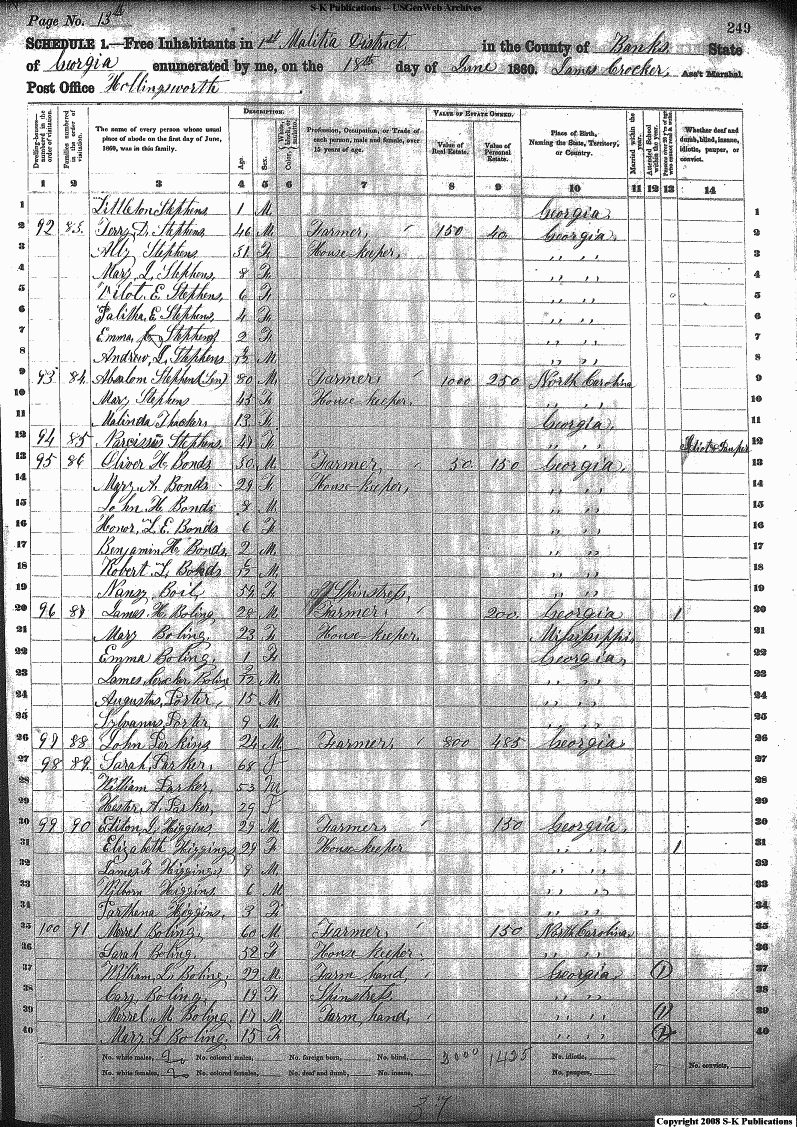 S-K Publications -- USGenWeb Archives
Page No. 13th
249
SCHEDULE 1.—Free Inhabitants in 1st Malitia District in the County of Banks State
of Georgia enumerated by me, on the 18th day of June 1860. James Crocker, Ass't Marshal
Post Office Hollingsworth
Dwelling-houses—numbered in the order of visitation.
Families numbered in the order of visitation.
The name of every person whose usual place of abode on the first day of June, 1860, was in this family.
DESCRIPTION.
Age.
Sex.
Color, White, black, or mulatto.
Profession, Occupation, or Trade of each person, male and female, over 15 years of age.
VALUE OF ESTATE OWNED.
Value of Real Estate.
Value of Personal Estate.
Place of Birth, Naming the State, Territory, or Country.
Married within the year.
Attended School within the year.
Whether deaf and dumb, blind, insane, idiotic, pauper, or convict.
1 2 3 4 5 6 7 8 9 10 11 12 13 14
1 Littleton Stephens 1 M. Georgia 1
2 92 83 Stephens 46 M. Farmer 150 40 Georgia 2
3 Stephens 31 F. House keeper ,, ,, 3
4 Mary L. Stephens 8 F. ,, ,, 4
5 E. Stephens 6 F. ,, ,, 5
6 Talitha E. Stephens 4 F. ,, ,, 6
7 Emma Stephens 2 F. ,, ,, 7
8 Andrew J. Stephens M. ,, ,, 8
9 93 84 Absalom Stephens (Sen) 80 M. Farmer 1000 250 North Carolina 9
10 Mary Stephens 45 F. House keeper ,, ,, 10
11 Malinda Thacker 13 F. Georgia 11
12 94 85 Narcissus Stephens 47 F. ,, ,, Idiot & Pauper 12
13 95 86 Oliver H. Bonds 30 M. Farmer 50 150 Georgia 13
14 Mary A. Bonds 29 F. House keeper ,, ,, 14
15 John H. Bonds 8 M. ,, ,, 15
16 Honor L. E. Bonds 6 F. ,, ,, 16
17 Benjamin H. Bonds 2 M. ,, ,, 17
18 Robert L. Bonds M. ,, ,, 18
19 Nansy Boil 59 F. Spinstress ,, ,, 19
20 96 87 James H. Boling 28 M. Farmer 200 Georgia 1 20
21 Mary Boling 23 F. House keeper Mississippi 21
22 Emma Boling 1 F. Georgia 22
23 James Crocker Boling M. ,, ,, 23
24 Augustus Porter 15 M. ,, ,, 24
25 Sylvanus Porter 9 M. ,, ,, 25
26 97 88 John Perkins 24 M. Farmer 800 485 Georgia 26
27 98 89 Sarah Parker 68 F 27
28 William Parker 53 M 28
29 Hester A. Parker 29 F 29
30 99 90 J. Higgins 29 M. Farmer 150 Georgia 30
31 Elizabeth Higgins 29 F. House keeper ,, ,, 1 31
32 James F. Higgins 9 M. ,, ,, 32
33 Wilborn Higgins 6 M ,, ,, 33
34 Parthena Higgins 3 F. ,, ,, 34
35 100 91 Merrel Boling 60 M. Farmer 150 North Carolina 35
36 Sarah Boling 52 F. House keeper ,, ,, 36
37 William L. Boling 22 M. Farm hand Georgia 1 37
38 Cary Boling 19 F. Spinstress ,, ,, 38
39 Merrel M. Boling 17 M. Farm hand ,, ,, 1 39
40 Mary S. Boling 15 F. ,, ,, 1 40
No. white males, 20 No. colored males, No. foreign born, No. blind, 2000 1425 No. idiotic, No. convicts,
No. white females, 20 No. colored females, No. deaf and dumb, No. insane, No. paupers,
37
Copyright 2008 S-K Publications